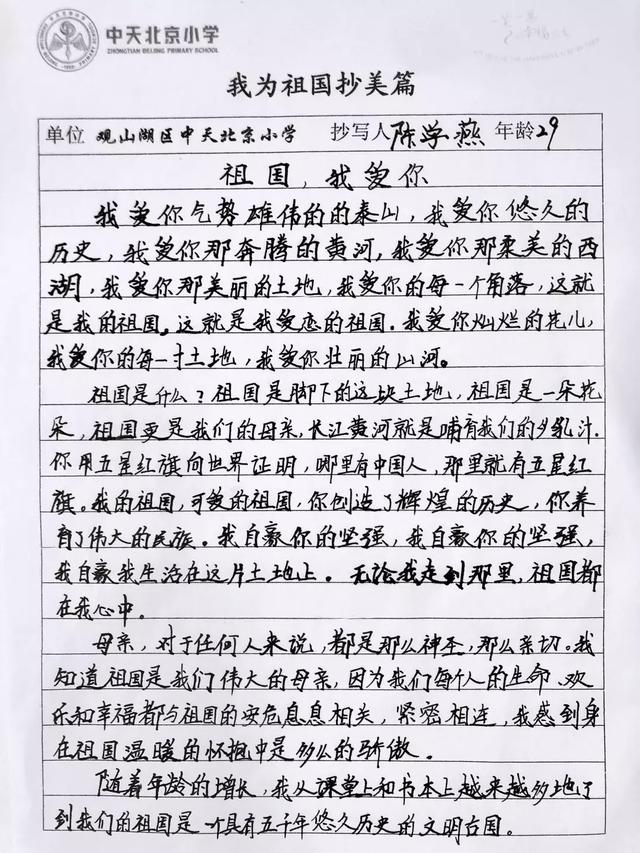 中天北京小学
ZHONGTIAN BEIJING PRIMARY SCHOOL
我为祖国抄美篇
单位 观山湖区中天北京小学 抄写人 陈学燕 年龄 29
祖国，我爱你
我爱你气势雄伟的的泰山，我爱你悠久的
历史，我爱你那奔腾的黄河，我爱你那柔美的西
湖，我爱你那美丽的土地，我爱你的每一个角落，这就
是我的祖国。这就是我爱恋的祖国．我爱你灿烂的花儿，
我爱你的每一寸土地，我爱你壮丽的山河。
祖国是什么？祖国是脚下的这块土地，祖国是一朵花
朵，祖国更是我们的母亲，长江黄河就是哺育我们的乳汁．
你用五星红旗向世界证明，哪里有中国人，那里就有五星红
旗。我的祖国，可爱的祖国，你创造了辉煌的历史，你养
育了伟大的民族。我自豪你的坚强，我自豪你的坚强，
我自豪我生活在这片土地上。无论我走到那里，祖国都
在我心中．
母亲，对于任何人来说，都是那么神圣，那么亲切。我
知道祖国是我们伟大的母亲，因为我们每个人的生命、欢
乐和幸福都与祖国的安危息息相关，紧密相连，我感到身
在祖国温暖的怀抱中是多么的骄傲。
随着年龄的增长，我从课堂上和书本上越来越多地了
到我们的祖国是一个具有五千年悠久历史的文明古国。